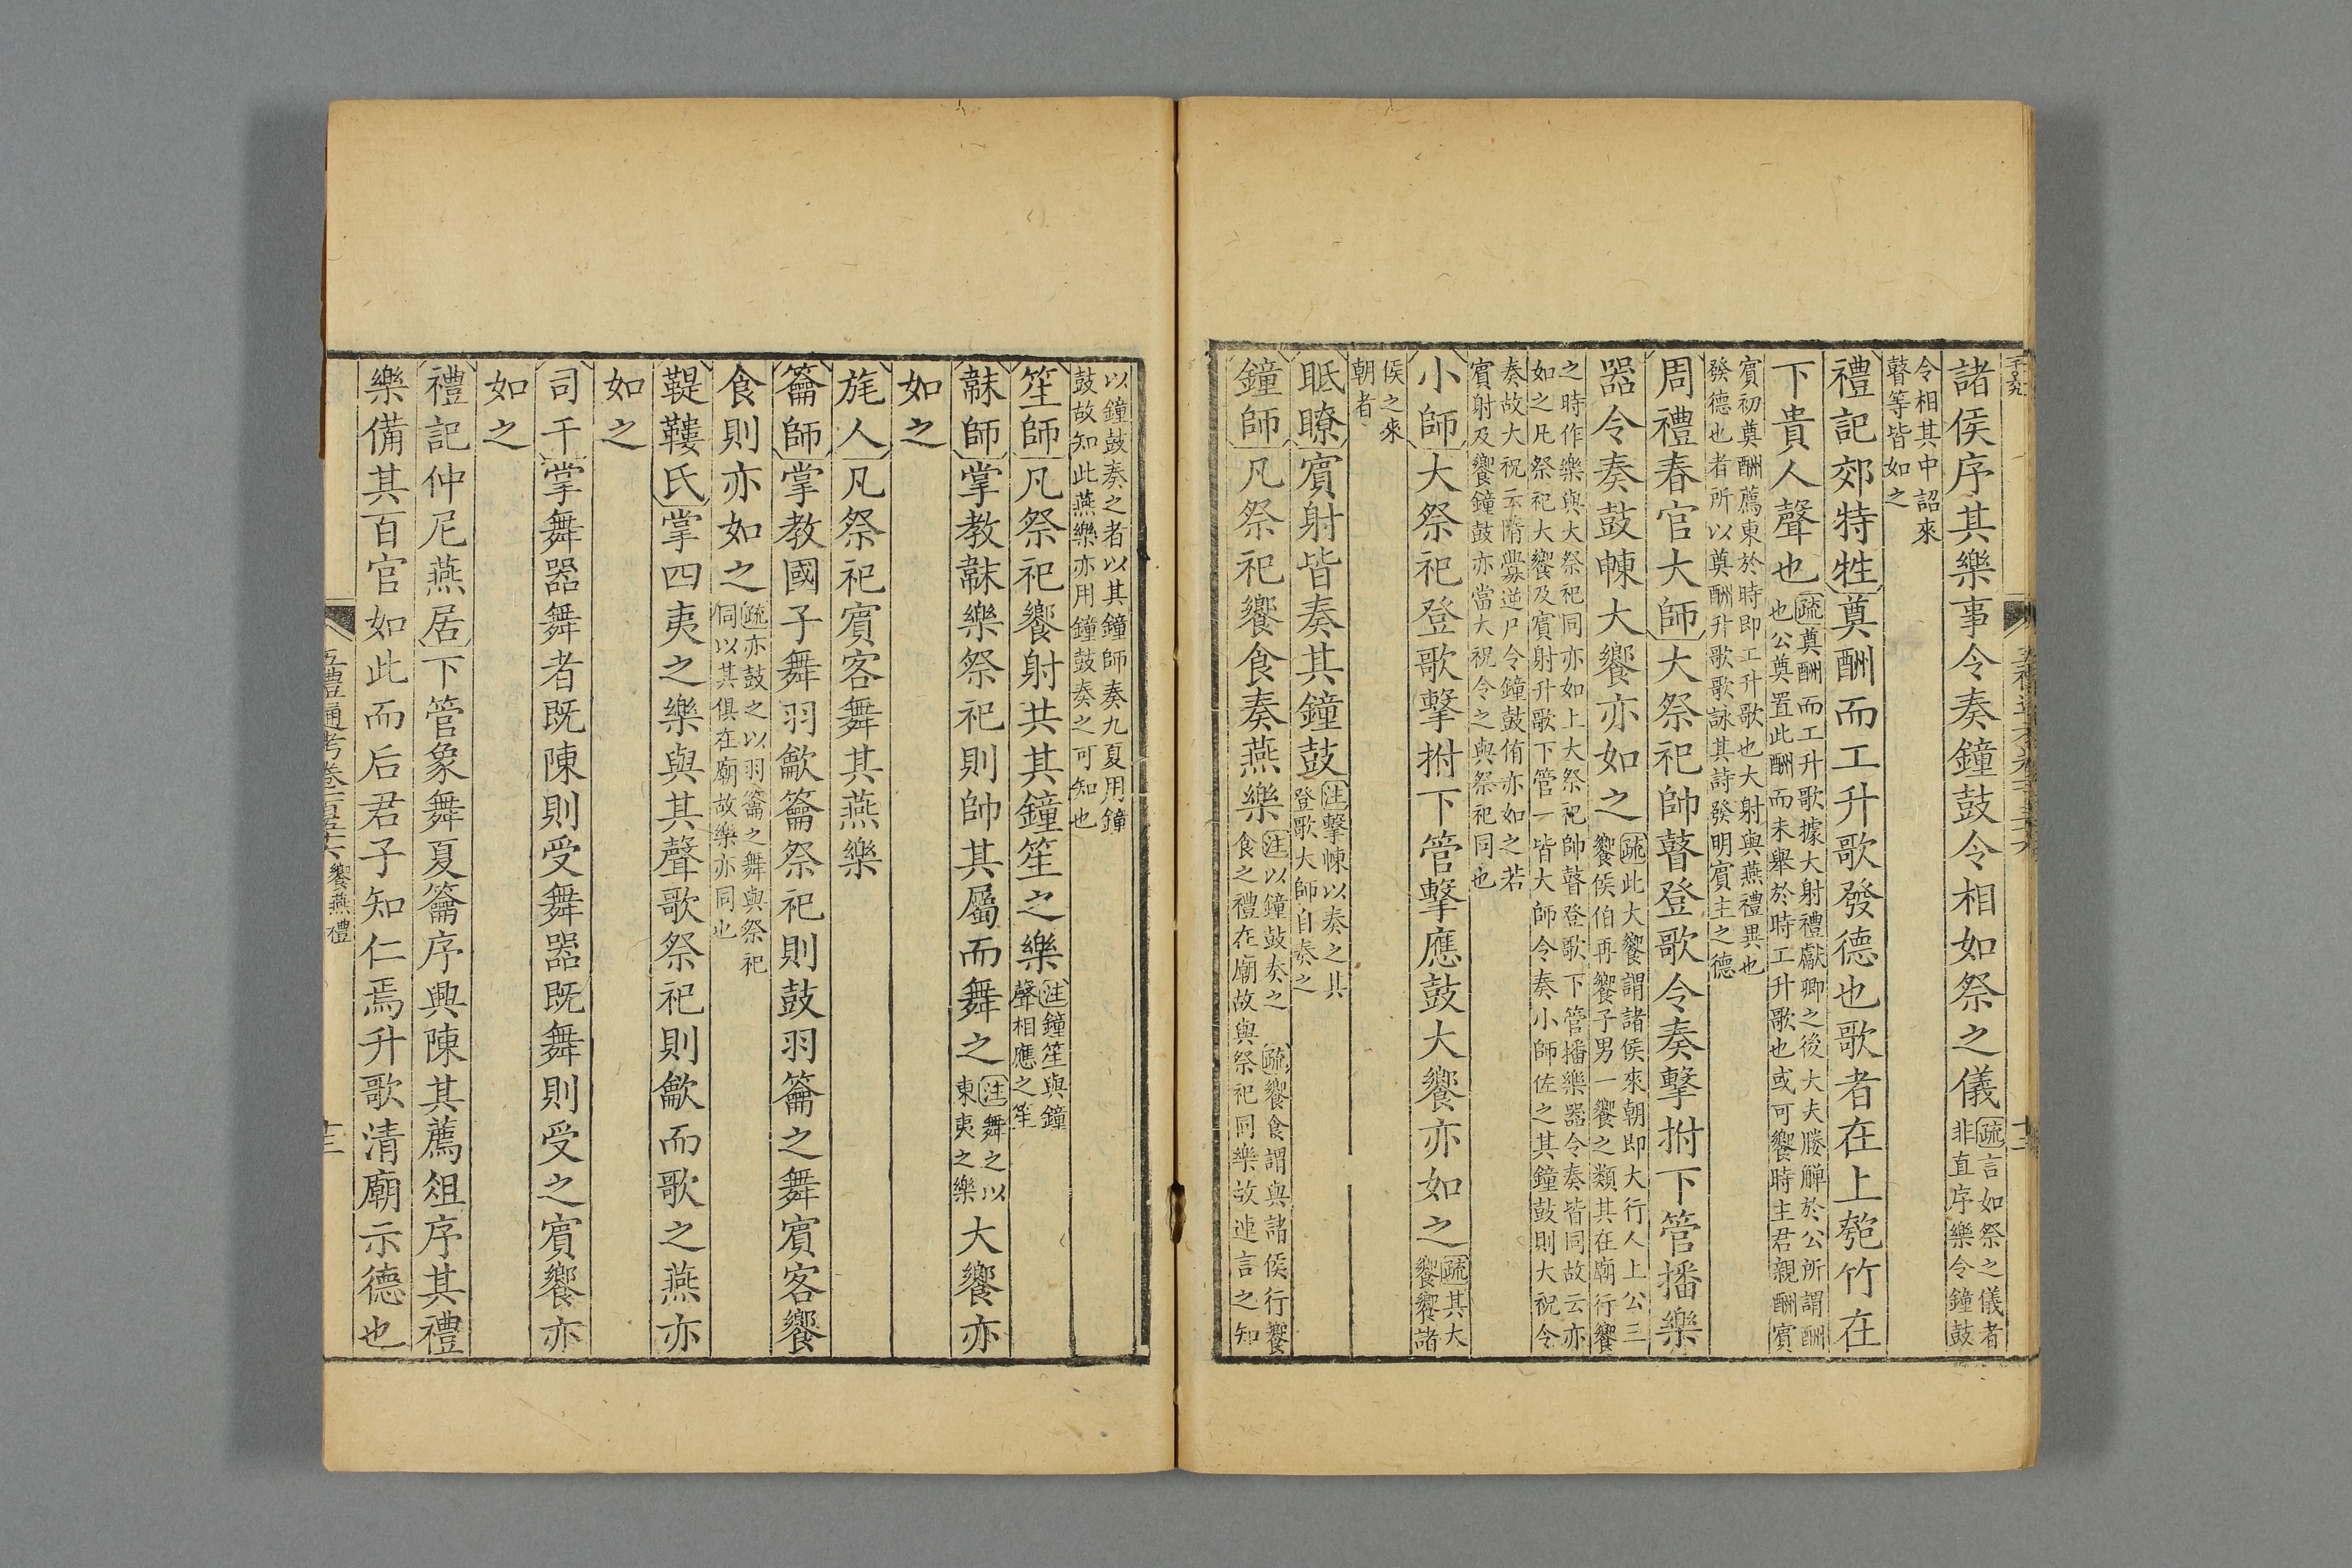 諸侯序其樂事令奏鐘鼓令相如祭之儀疏言如祭之儀者非直序樂令鐘鼓
令相其中詔來瞽等皆如之
禮記郊特牲奠酬而工升歌發德也歌者在上匏竹在
下貴人聲也疏奠酬而工升歌據大射禮獻卿之後大夫媵觶於公所謂酬也公奠置此酬而未舉於時工升歌也或可饗時主君親酬賓
賓初奠酬薦東於時即工升歌也大射與燕禮異也發德也者所以奠酬升歌歌詠其詩發明賓主之德
周禮春官大師大祭祀帥瞽登歌令奏擊拊下管播樂
器令奏鼓朄大饗亦如之疏此大饗謂諸侯來朝即大行人上公三饗侯伯再饗子男一饗之類其在廟行饗
之時作樂與大祭祀同亦如上大祭祀帥瞽登歌下管播樂器令奏皆同故云亦如之凡祭祀大饗及賓射升歌下管一皆大師令奏小師佐之其鐘鼓則大祝令
奏故大祝云隋釁逆尸令鐘鼓侑亦如之若賓射及饗鐘鼓亦當大祝令之與祭祀同也
小師大祭祀登歌擊拊下管擊應鼓大饗亦如之疏其大饗饗諸
侯之來朝者
眡瞭賓射皆奏其鐘鼓注擊朄以奏之其登歌大師自奏之
鐘師凡祭祀饗食奏燕樂注以鐘鼓奏之 疏饗食謂與諸侯行饗食之禮在廟故與祭祀同樂故連言之知
以鐘鼓奏之者以其鐘師奏九夏用鐘鼓故知此燕樂亦用鐘鼓奏之可知也
笙師凡祭祀饗射共其鐘笙之樂注鐘笙與鐘聲相應之笙
韎師掌教韎樂祭祀則帥其屬而舞之注舞之以東夷之樂大饗亦
如之
旄人凡祭祀賓客舞其燕樂
籥師掌教國子舞羽龡籥祭祀則鼓羽籥之舞賓客饗
食則亦如之疏亦鼓之以羽籥之舞與祭祀同以其俱在廟故樂亦同也
鞮鞻氏掌四夷之樂與其聲歌祭祀則龡而歌之燕亦
如之
司干掌舞器舞者既陳則受舞器既舞則受之賓饗亦
如之
禮記仲尼燕居下管象舞夏籥序興陳其薦俎序其禮
樂備其百官如此而后君子知仁焉升歌清廟示德也
五禮通考卷一百五十六 饗燕禮 十三